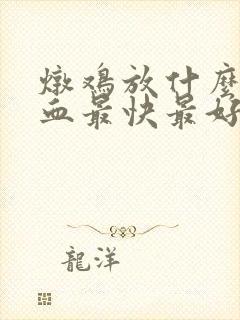 燉鸡放什麽
血最快最好
龍洋